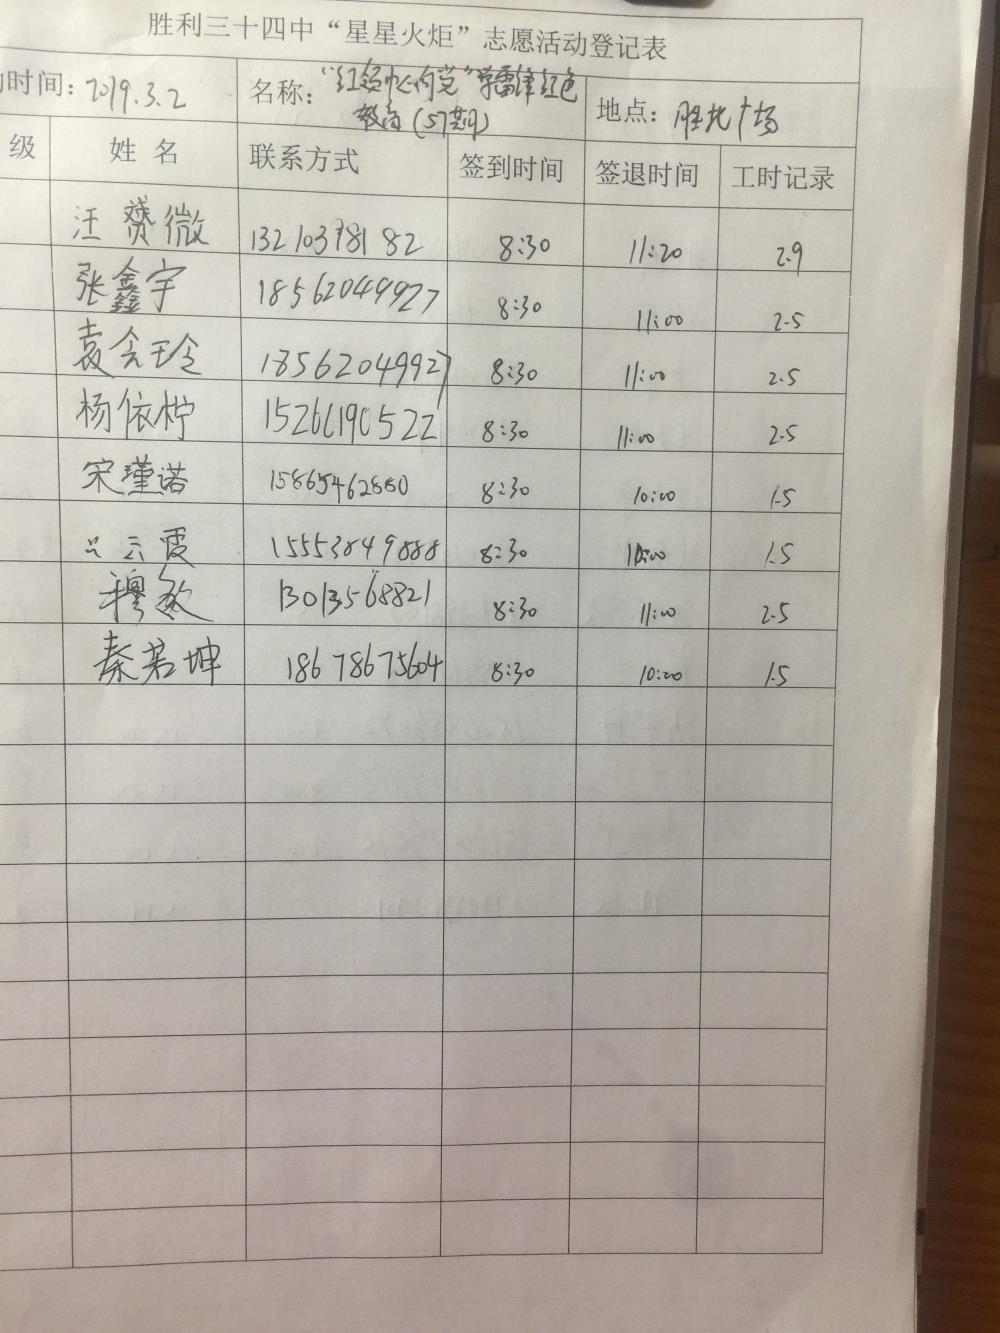 胜利三十四中“星星火炬”志愿活动登记表
时间：2019.3.2 名称：“红领巾心向党”学雷锋红色 地点：胜北广场
教育（57期）
级 姓名 联系方式 签到时间 签退时间 工时记录
汪赟微 13210378182 8:30 11:20 2.9
张鑫宇 18562049927 8:30 11:00 2.5
袁会玲 18562049927 8:30 11:00 2.5
杨依柠 15266190522 8:30 11:00 2.5
宋瑾诺 15865462880 8:30 10:00 1.5
云霞 15553849888 8:30 10:00 1.5
穆 13013568821 8:30 11:00 2.5
秦若坤 18678675604 8:30 10:00 1.5